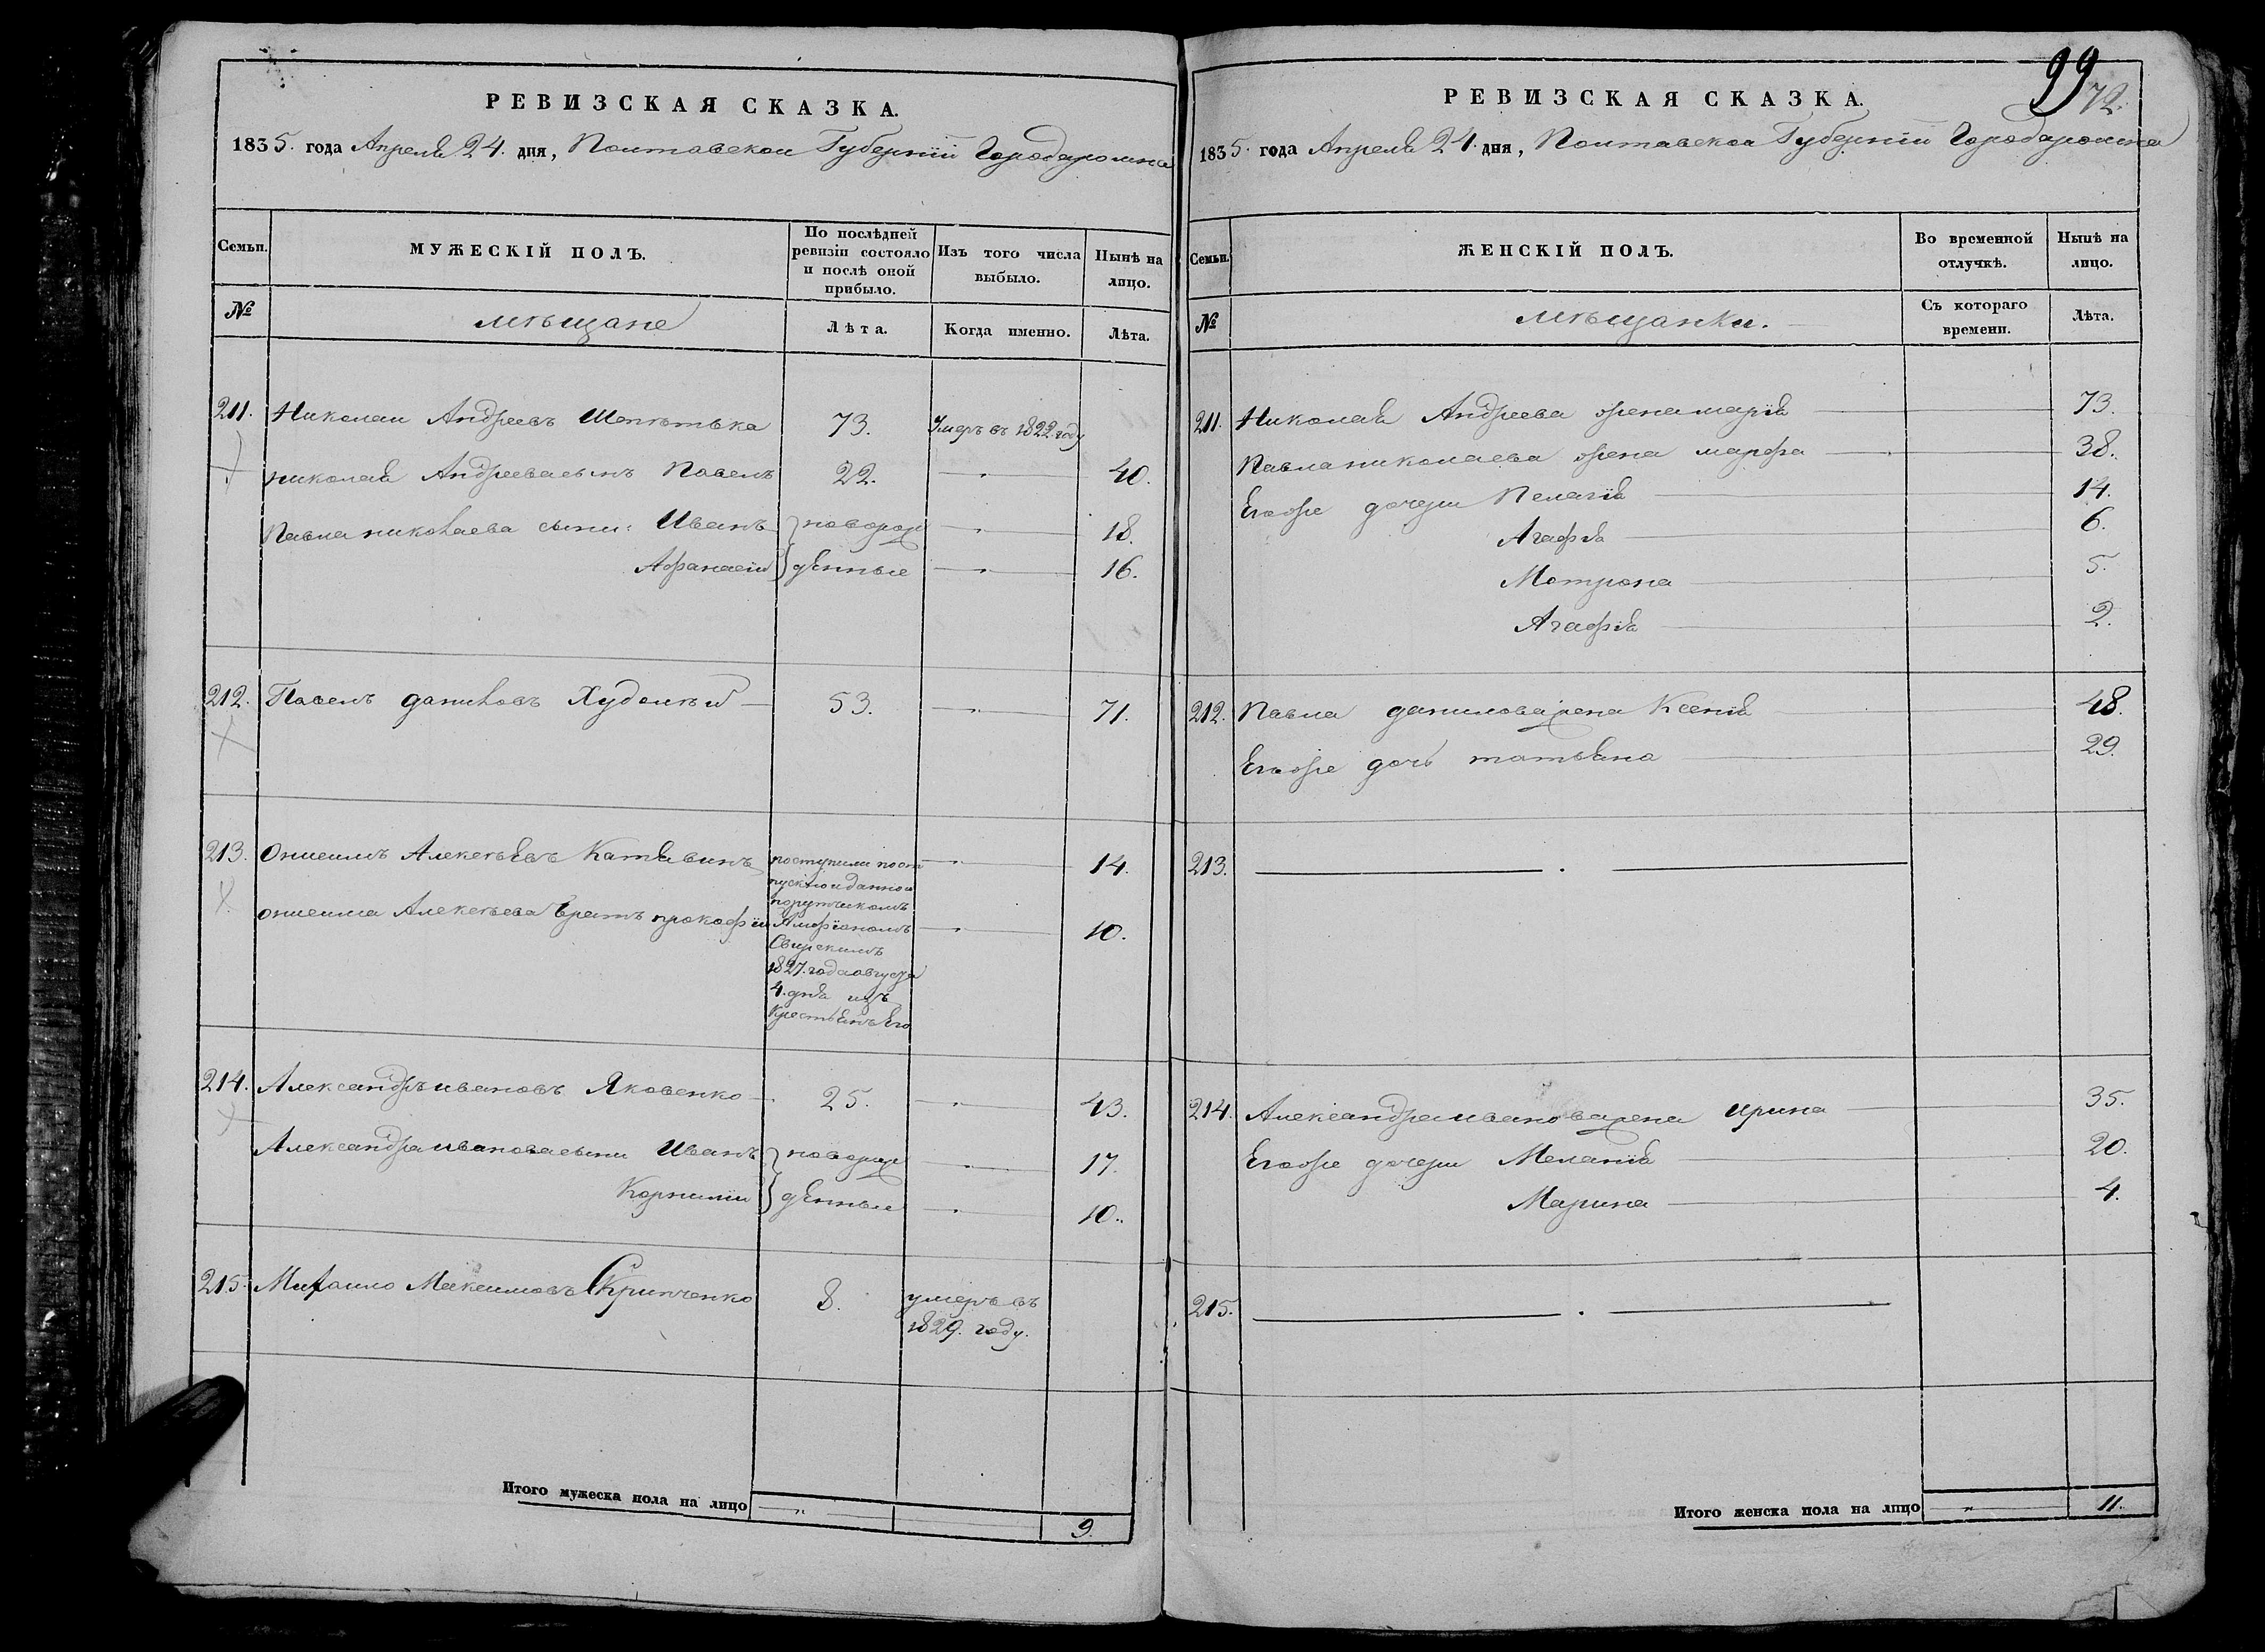 РЕВИЗСКАЯ СКАЗКА.
1835. года Апреля 24. дня, Полтавской Губернїи Города ромна
Семьи. МУЖЕСКІЙ ПОЛЪ. По послѣдней ревизіи состояло и послѣ оной прибыло. Изъ того числа выбыло. Нынѣ на лицо.
№ мѣщане Лѣта. Когда именно. Лѣта.
211. Николай Андреевъ 73. Умеръ въ 1822 году
николая Андреева сынъ Павелъ 22. " 40.
Павла николаева сыны: Иванъ новорож " 18.
Афанасїй денные " 16.
212. Павелъ даниловъ Худолѣй 53. " 71.
213. Онисимъ Алексѣевъ поступили по от " 14.
пускной данной
порутчикомъ
онисима Алексѣева братъ прокофїй Амфїаномъ " 10.
Свирскимъ
1827. года августа
4. дня изъ
Крестьянъ Его
214. Александръ ивановъ Яковенко 25. " 43.
Александра иванова сыны Иванъ новорож " 17.
Корнилїй денные " 10.
215. Михайло Максимовъ 8. умеръ въ
1829. году.
Итого мужеска пола на лицо " 9.
99
72.
РЕВИЗСКАЯ СКАЗКА.
1835. года Апреля 24. дня, Полтавской Губернїи Города ромна
Семьи. ЖЕНСКІЙ ПОЛЪ. Во временной отлучкѣ. Нынѣ на лицо.
№ мѣщанки. Съ котораго времени. Лѣта.
211. Николая Андреева жена марїя 73.
Павла николаева жена марфа 38.
Егоже дочери Пелагїя 14.
Агафїя 6.
Мотрона 5.
Агафїя 2.
212. Павла данилова жена Ксенїя 48.
Егоже дочь татьяна 29.
213.
214. Александра иванова жена ирина 35.
Егоже дочери Меланїя 20.
Марина 4.
215.
Итого женска пола на лицо " 11.